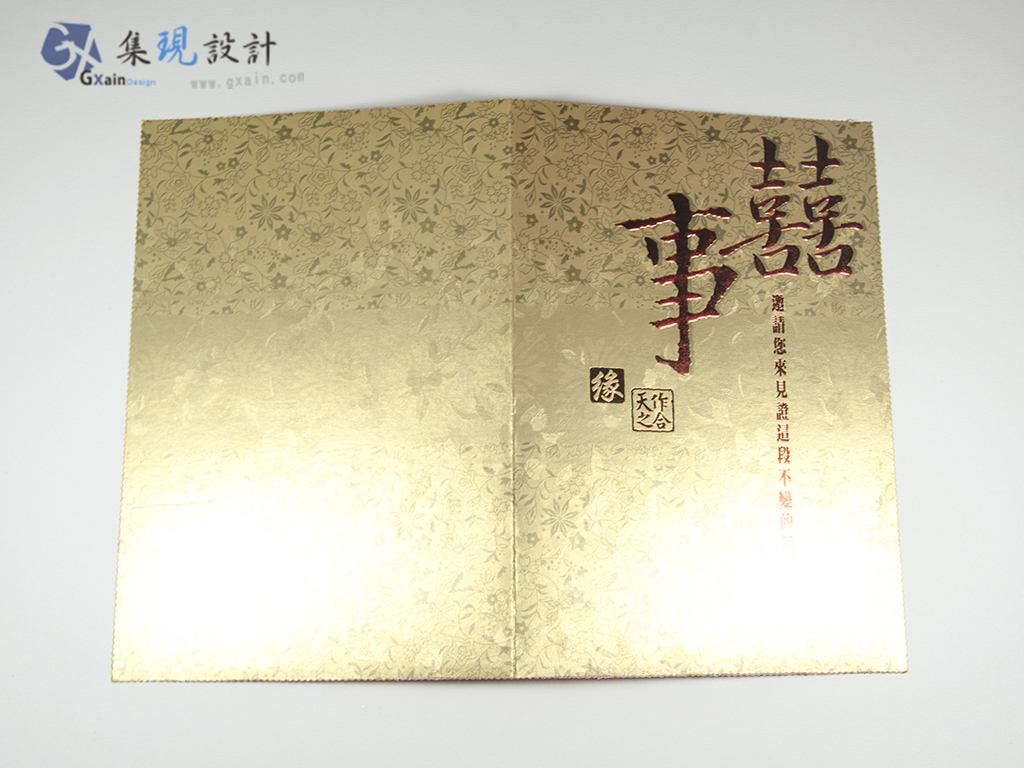 GX
集現設計
GXain Design
www.gxain.com
囍事
邀請您來見證這段不變的
緣
天作之合